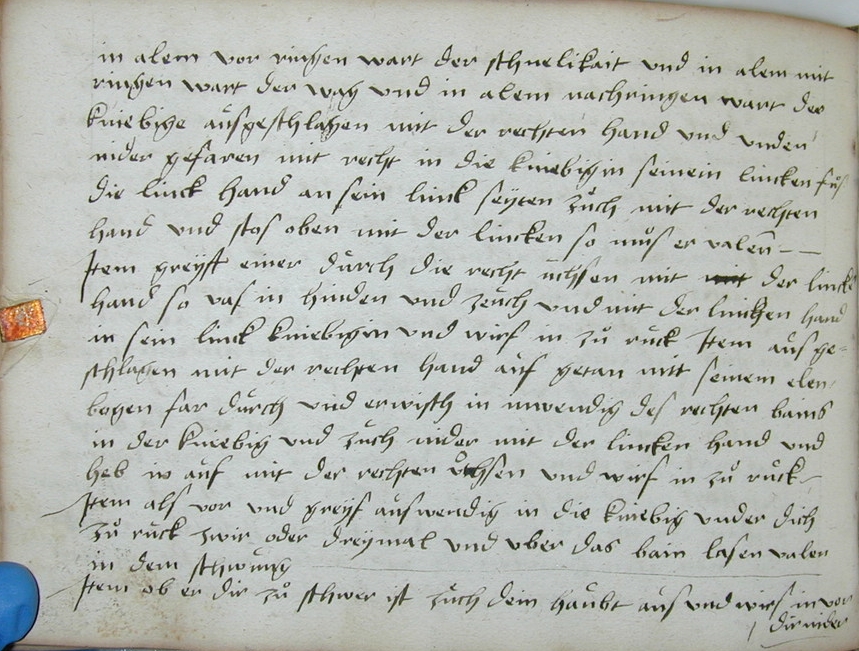 in alem vor ringen wart der schnelikait und in alem mit
ringen wart der wag und in alem nachringen wart der
kniebige ausgeschlagen mit der rechten hand und unden
nider gefaren mit recht in die kniebigin seinem lincken fus
die linck hand an sein linck seyten zuch mit der rechten
hand und stos oben mit der lincken so mus er valen
Item greyft einer durch die recht uchsen mit der linck
hand so vas in hinden und zeuch und mit der lincken hand
in sein linck kniebigin und wirf in zu ruck Item ausge-
schlagen mit der rechten hand auf getan mitt seinem elen
bogen far durch und erwisch in inwendig des rechten bains
in der kniebig und zuch nider mit der lincken hand und
heb in auf mit der rechten uchsen und wirf in zu ruck
Item als vor und greyf auswendig in die kniebig under dich
zu ruck zwir oder dreymal und uber das bain lasen valen
in dem schwung
Item ob er dir zu schwer ist zuch dein haubt aus und wirf in vor
dir nider